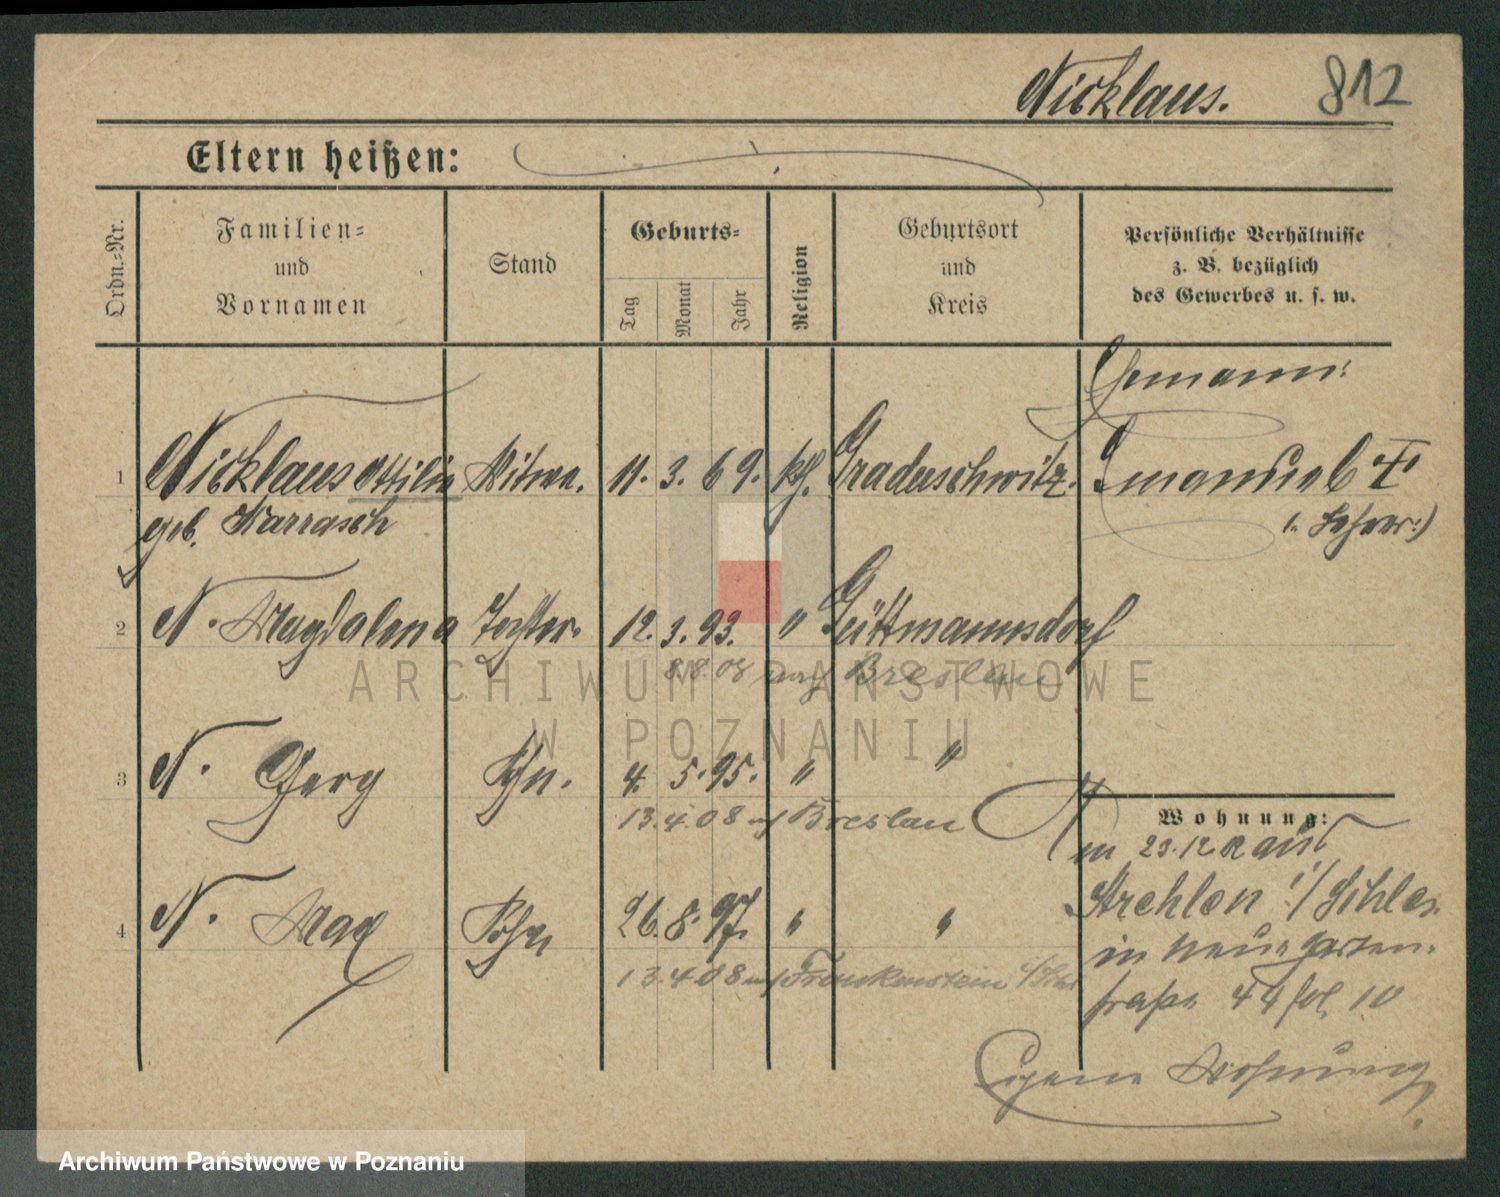 Nicklaus. 812
Eltern heißen:
Ordn.-Nr.
Familien-
und
Vornamen
Stand
Geburts-
Tag
Monat
Jahr
Religion
Geburtsort
und
Kreis
Persönliche Verhältnisse
z. B. bezüglich
des Gewerbes u. s. w.
Ehemann:
1 Nicklaus Ottilie Witwe. 11. 3. 69. kth. Graduschwitz. Emanuel †
geb. Karrasch (: Lehrer :)
2 N. Magdalena Tochter. 12. 3. 93. " Güttmannsdorf
8.8.08 nach Breslau
3 N. Georg Sohn. 4. 5. 95. " "
13.4.08 nach Breslau
Wohnung:
23.12 aus
Strehlen i/Schles.
4 N. Max Sohn 26. 8. 97. " "
in neue Garten-
13.4.08 nach Frankenstein i/Schl
straße 44 10
Eigene Wohnung.
ARCHIWUM PAŃSTWOWE
W POZNANIU
Archiwum Państwowe w Poznaniu